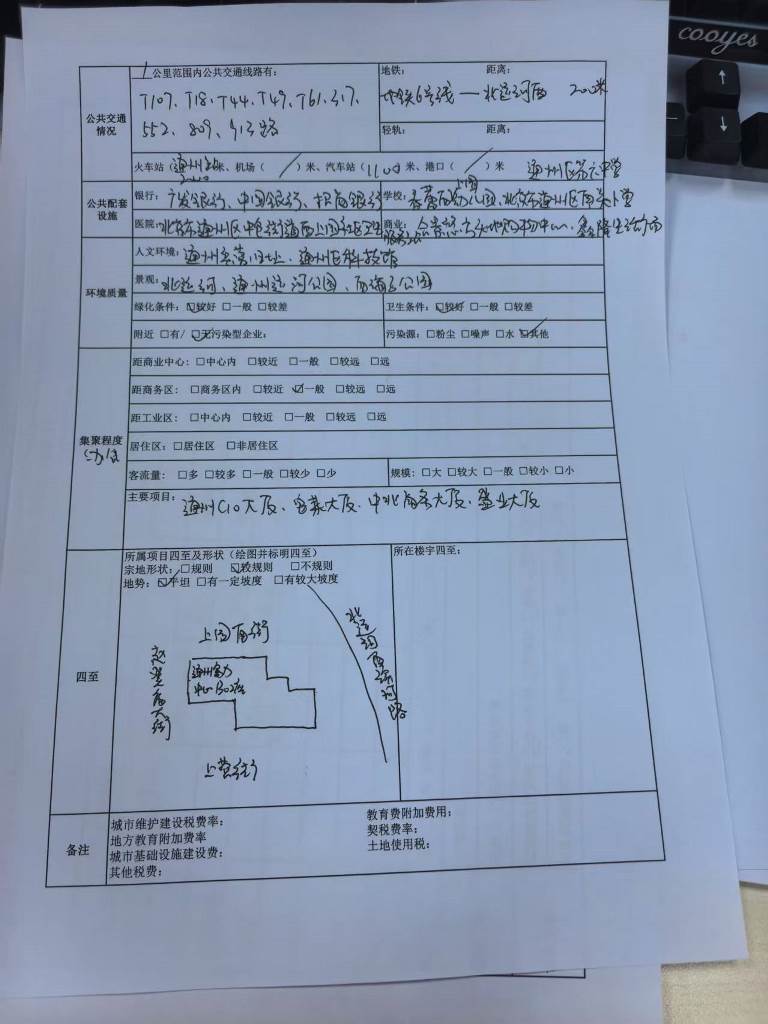 cooyes
公共交通情况
1公里范围内公共交通线路有：
T107、T18、T44、T49、T61、317、
552、809、
地铁： 距离：
地铁6号线——北运河西 200米
轻轨： 距离：
火车站（通州 米、机场（／）米、汽车站（1100 米、港口（／）米
公共配套设施
银行：广发银行、中国银行、招商银行
学校： 幼儿园、北京市通州区
医院：北京市通州区中仓街道西上园社区卫生服务
商业： 购物中心、 生活广场
环境质量
人文环境： 旧址、通州区科技馆
景观：北运河、通州运河公园、西海子公园
绿化条件：☑较好 □一般 □较差
卫生条件：☑较好 □一般 □较差
附近 □有/ ☑无污染型企业：
污染源：□粉尘 □噪声 □水 ☑其他
集聚程度
办公
距商业中心：□中心内 □较近 □一般 □较远 □远
距商务区：□商务区内 □较近 ☑一般 □较远 □远
距工业区：□中心内 □较近 □一般 □较远 □远
居住区：□居住区 □非居住区
客流量：□多 □较多 □一般 □较少 □少
规模：□大 □较大 □一般 □较小 □小
主要项目：通州CIO大厦、 大厦、中北商务大厦、 大厦
四至
所属项目四至及形状（绘图并标明四至）
宗地形状：□规则 ☑较规则 □不规则
地势：☑平坦 □有一定坡度 □有较大坡度
所在楼宇四至：
上园西街
通州富力
中心
上营街
北运河西滨河路
备注
城市维护建设税费率：
地方教育附加费率
城市基础设施建设费：
其他税费：
教育费附加费用：
契税费率：
土地使用税：